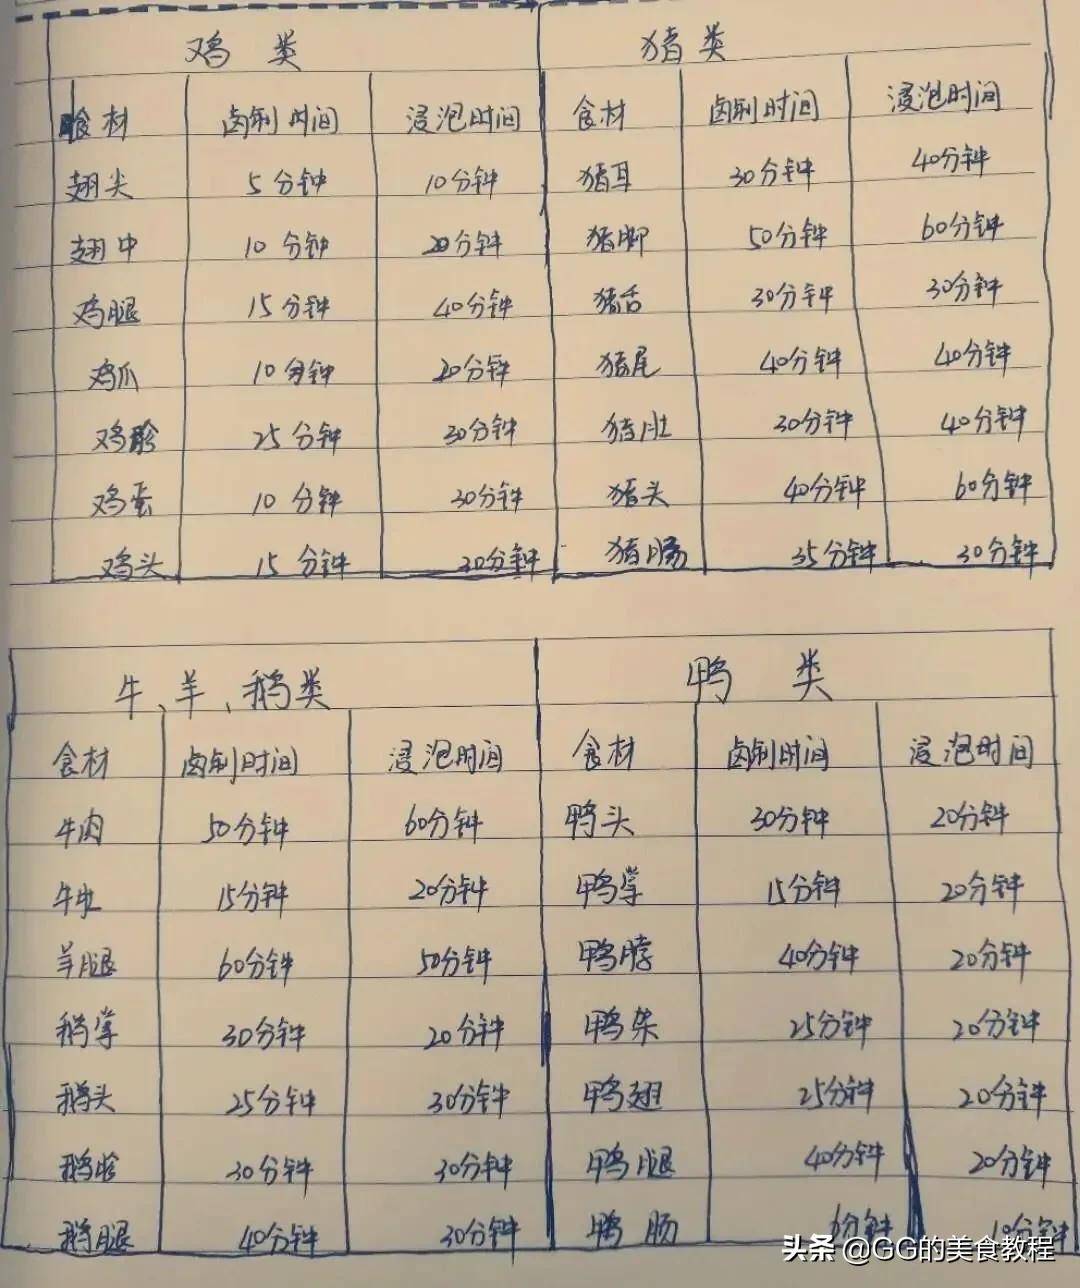 鸡 类 猪类
食材 卤制时间 浸泡时间 食材 卤制时间 浸泡时间
翅尖 5分钟 10分钟 猪耳 30分钟 40分钟
翅中 10分钟 20分钟 猪脚 50分钟 60分钟
鸡腿 15分钟 40分钟 猪舌 30分钟 30分钟
鸡爪 10分钟 20分钟 猪尾 40分钟 40分钟
鸡胗 25分钟 30分钟 猪肚 30分钟 40分钟
鸡蛋 10分钟 30分钟 猪头 40分钟 60分钟
鸡头 15分钟 20分钟 猪肠 35分钟 30分钟
牛、羊、鹅类 鸭 类
食材 卤制时间 浸泡时间 食材 卤制时间 浸泡时间
牛肉 50分钟 60分钟 鸭头 30分钟 20分钟
15分钟 20分钟 鸭掌 15分钟 20分钟
羊腿 60分钟 50分钟 鸭脖 40分钟 20分钟
鹅掌 30分钟 20分钟 25分钟 20分钟
鹅头 25分钟 30分钟 鸭翅 25分钟 20分钟
鹅胗 30分钟 30分钟 鸭腿 40分钟 20分钟
鹅腿 40分钟 30分钟 鸭肠 分钟 10分钟
头条 @GG的美食教程